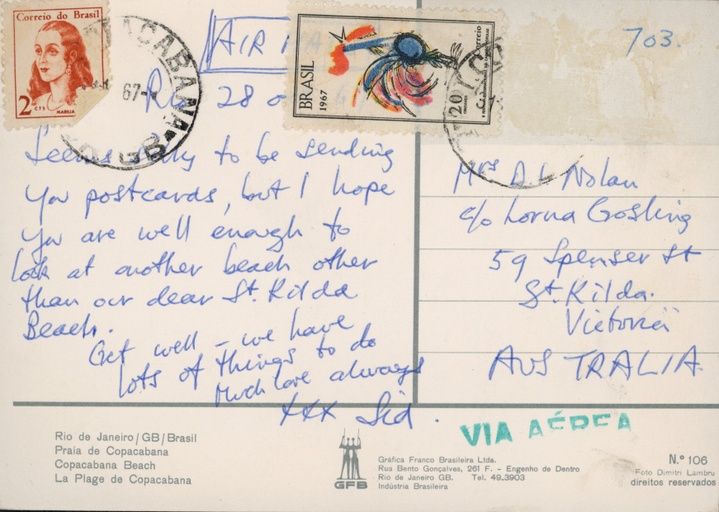 Correio do Brasil
2 cts
MARILIA
COPACABANA
67
GB
AIR MA
BRASIL
1967
CORREIO
20
703.
Rio 28
Seems silly to be sending
you postcards, but I hope
you are well enough to
look at another beach other
than our dear St. Kilda
Beach.
Get well - we have
lots of things to do
Much love always
xxx Sid.
Mrs D. L Nolan
c/o Lorna Gosling
59 Spenser St
St. Kilda.
Victoria
AUSTRALIA.
VIA AÉREA
Rio de Janeiro/GB/Brasil
Praia de Copacabana
Copacabana Beach
La Plage de Copacabana
GFB
Gráfica Franco Brasileira Ltda.
Rua Bento Gonçalves, 261 F. - Engenho de Dentro
Rio de Janeiro GB. Tel. 49.3903
Indústria Brasileira
N.º 106
Foto Dimitri Lambru
direitos reservados